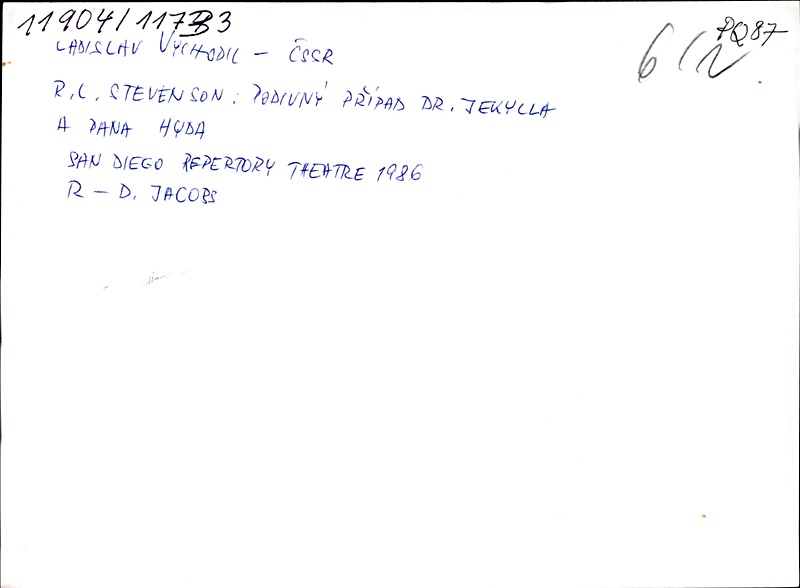 11904/11733
PQ87
LADISLAV VYCHODIL – ČSSR
R.L. STEVENSON: PODIVNÝ PŘÍPAD DR. JEKYLLA
A PANA HYDA
SAN DIEGO REPERTORY THEATRE 1986
R – D. JACOBS